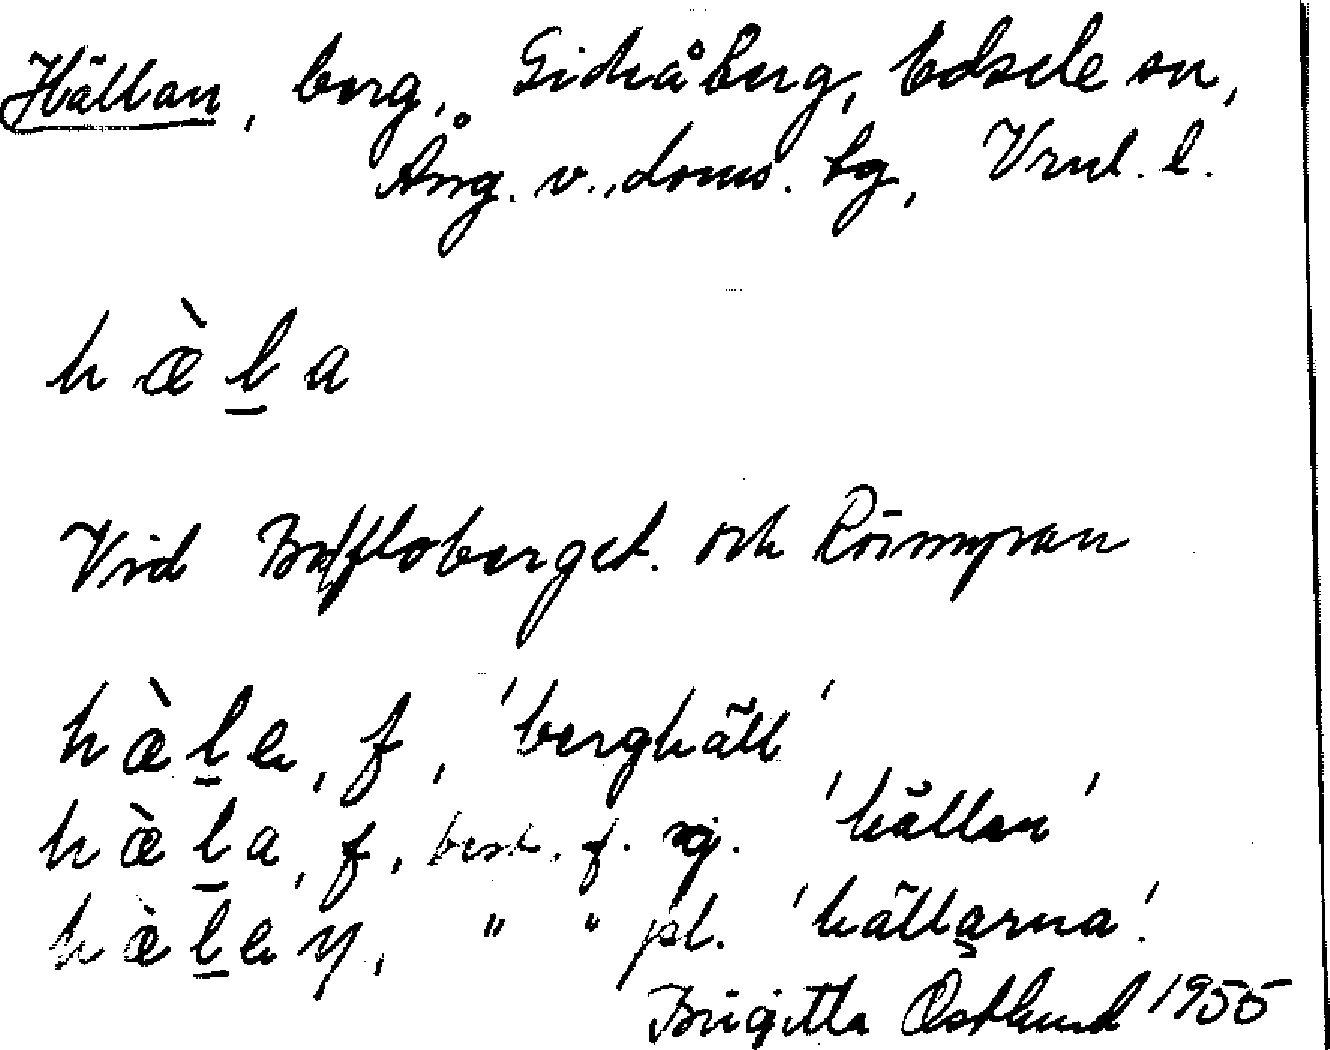 Hällan, berg, Gideåberg, Edsele sn,
Ång. v. doms. tg, Vrnl. l.
h æ̀ l̲ a
Vid och Rörmyran
h æ̀ l̲ e, f, 'berghäll'
h æ̀ l̲ a, f, best. f. sg. 'hällan'
h æ̀ l̲ e ŋ, " " pl. 'hällarna'.
Birgitta Östlund 1955